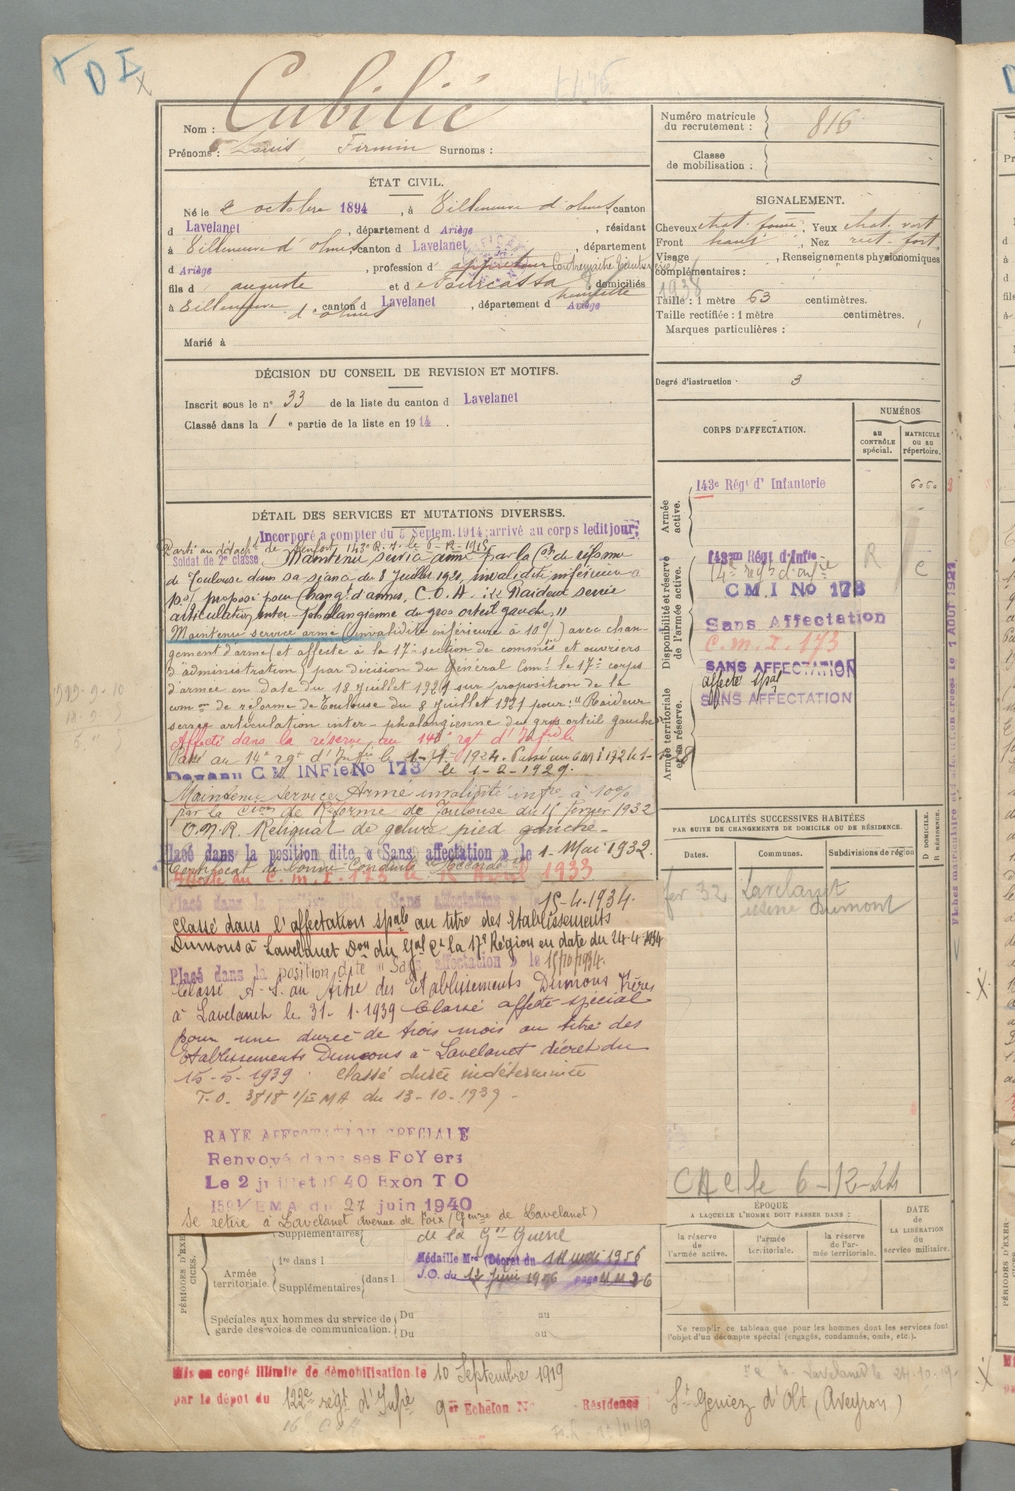 Nom : Cubilié
Prénoms : Louis, Firmin Surnoms :
Numéro matricule du recrutement : 816
Classe de mobilisation :
ÉTAT CIVIL.
Né le 2 octobre 1894, à Villeneuve d'olmes, canton
d Lavelanet, département d Ariège, résidant
à Villeneuve d'olmes, canton d Lavelanet, département
d Ariège, profession d Contremaitre
fils d auguste et d domiciliés
à Villeneuve d'olmes canton d Lavelanet, département d Ariège
Marié à
SIGNALEMENT.
Cheveux chat. foncé, Yeux chat. vert
Front haut, Nez rect. fort
Visage, Renseignements physionomiques
complémentaires :
1938
Taille : 1 mètre 63 centimètres.
Taille rectifiée : 1 mètre centimètres.
Marques particulières :
DÉCISION DU CONSEIL DE REVISION ET MOTIFS.
Inscrit sous le n° 33 de la liste du canton d Lavelanet
Classé dans la 1e partie de la liste en 1914.
Degré d'instruction : 3
CORPS D'AFFECTATION.
NUMÉROS
AU CONTRÔLE spécial.
MATRICULE ou au répertoire.
Armée active.
143e Régt d'Infanterie
6060
Disponibilité et réserve de l'armée active.
143me Régt d'Infie
14e regt d'infie
R
C
C M I No 173
Sans Affectation
C.M.I. 173
SANS AFFECTATION
affecté spal
SANS AFFECTATION
Armée territoriale et sa réserve.
DÉTAIL DES SERVICES ET MUTATIONS DIVERSES.
Incorporé a compter du 5 Septem. 1914; arrivé au corps leditjour;
Soldat de 2e classe. Maintenu service armé par la Con de réforme
de Toulouse dans sa séance du 8 Juillet 1921, invalidité inférieure à
p% proposé pour changt d'armes, C.O.A. "Raideur serrée
articulation inter-phalangienne du gros orteil gauche"
Maintenu service armé invalidité inférieure à 10% avec chan-
gement d'arme et affecté à la 17e section de commis et ouvriers
d'administration par décision du Général Comt le 17e corps
d'armée en date du 18 Juillet 1921 sur proposition de la
comon de reforme de Toulouse du 8 Juillet 1921 pour: "Raideur
serrée articulation inter-phalangienne du gros orteil gauche"
Affecté dans la réserve au 143e rgt d'Infie
Passé au 14e rgt d'Infie le 1-1-1924.
C M INFie No 173 le 1-2-1929.
Maintenu Service Armé invalidité infre à 10%
par la Cion de Réforme de Toulouse du 15 Février 1932
O.N.R. Reliquat de gelure pied gauche-
Placé dans la position dite « Sans affectation » le 1- Mai 1932.
Certificat de bonne Conduite "Accordé"
Affecté au C.M.I. 173 le Avril 1933
Placé dans la position dite « Sans affectation » le 15-4-1934.
Classé dans l'affectation spale au titre des Etablissements
Dumons à Lavelanet Don du Gal Ct la 17e Région en date du 24-4-1934
Placé dans la position dite « Sans affectation » le 15/10/1934.
Classé A.S. au titre des Etablissements Dumons Frères
à Lavelanet le 31-1-1939 Classé affecté spécial
pour une durée de trois mois au titre des
Etablissements Dumons à Lavelanet décret du
15-5-1939. Classé durée indéterminée
T.O. 3818 1/EMA du 13-10-1939-
RAYE AFFECTATION SPECIALE
Renvoyé dans ses FoYers
Le 2 juillet 1940 Exon T O
1/EMA du 27 juin 1940
Se retire à Lavelanet Avenue de Foix (Genre de Lavelanet)
LOCALITÉS SUCCESSIVES HABITÉES
PAR SUITE DE CHANGEMENTS DE DOMICILE OU DE RÉSIDENCE.
Dates. Communes. Subdivisions de région
D DOMICILE. R RÉSIDENCE.
fer 32 Lavelanet
usine Dumont
Fiches matricul
le 7 AOUT 1921
ÉPOQUE
A LAQUELLE L'HOMME DOIT PASSER DANS :
la réserve de l'armée active.
l'armée territoriale.
la réserve de l'armée territoriale.
DATE DE LA LIBÉRATION du service militaire.
PÉRIODES D'EXERCICES.
Supplémentaires
de la Gde Guerre
Armée territoriale.
1re dans l
Supplémentaires dans l
Médaille Mre (Décret du 14 mai 1956
J.O. du 12 Juin 1956 page
Spéciales aux hommes du service de garde des voies de communication.
Du au
Du au
Ne remplir ce tableau que pour les hommes dont les services font
l'objet d'un décompte spécial (engagés, condamnés, omis, etc.).
Mis en congé illimité de démobilisation le 10 Septembre 1919
par le dépôt du 122e régt d'Infie 9er Echelon N° Résidence St Geniez d'Olt (Aveyron)